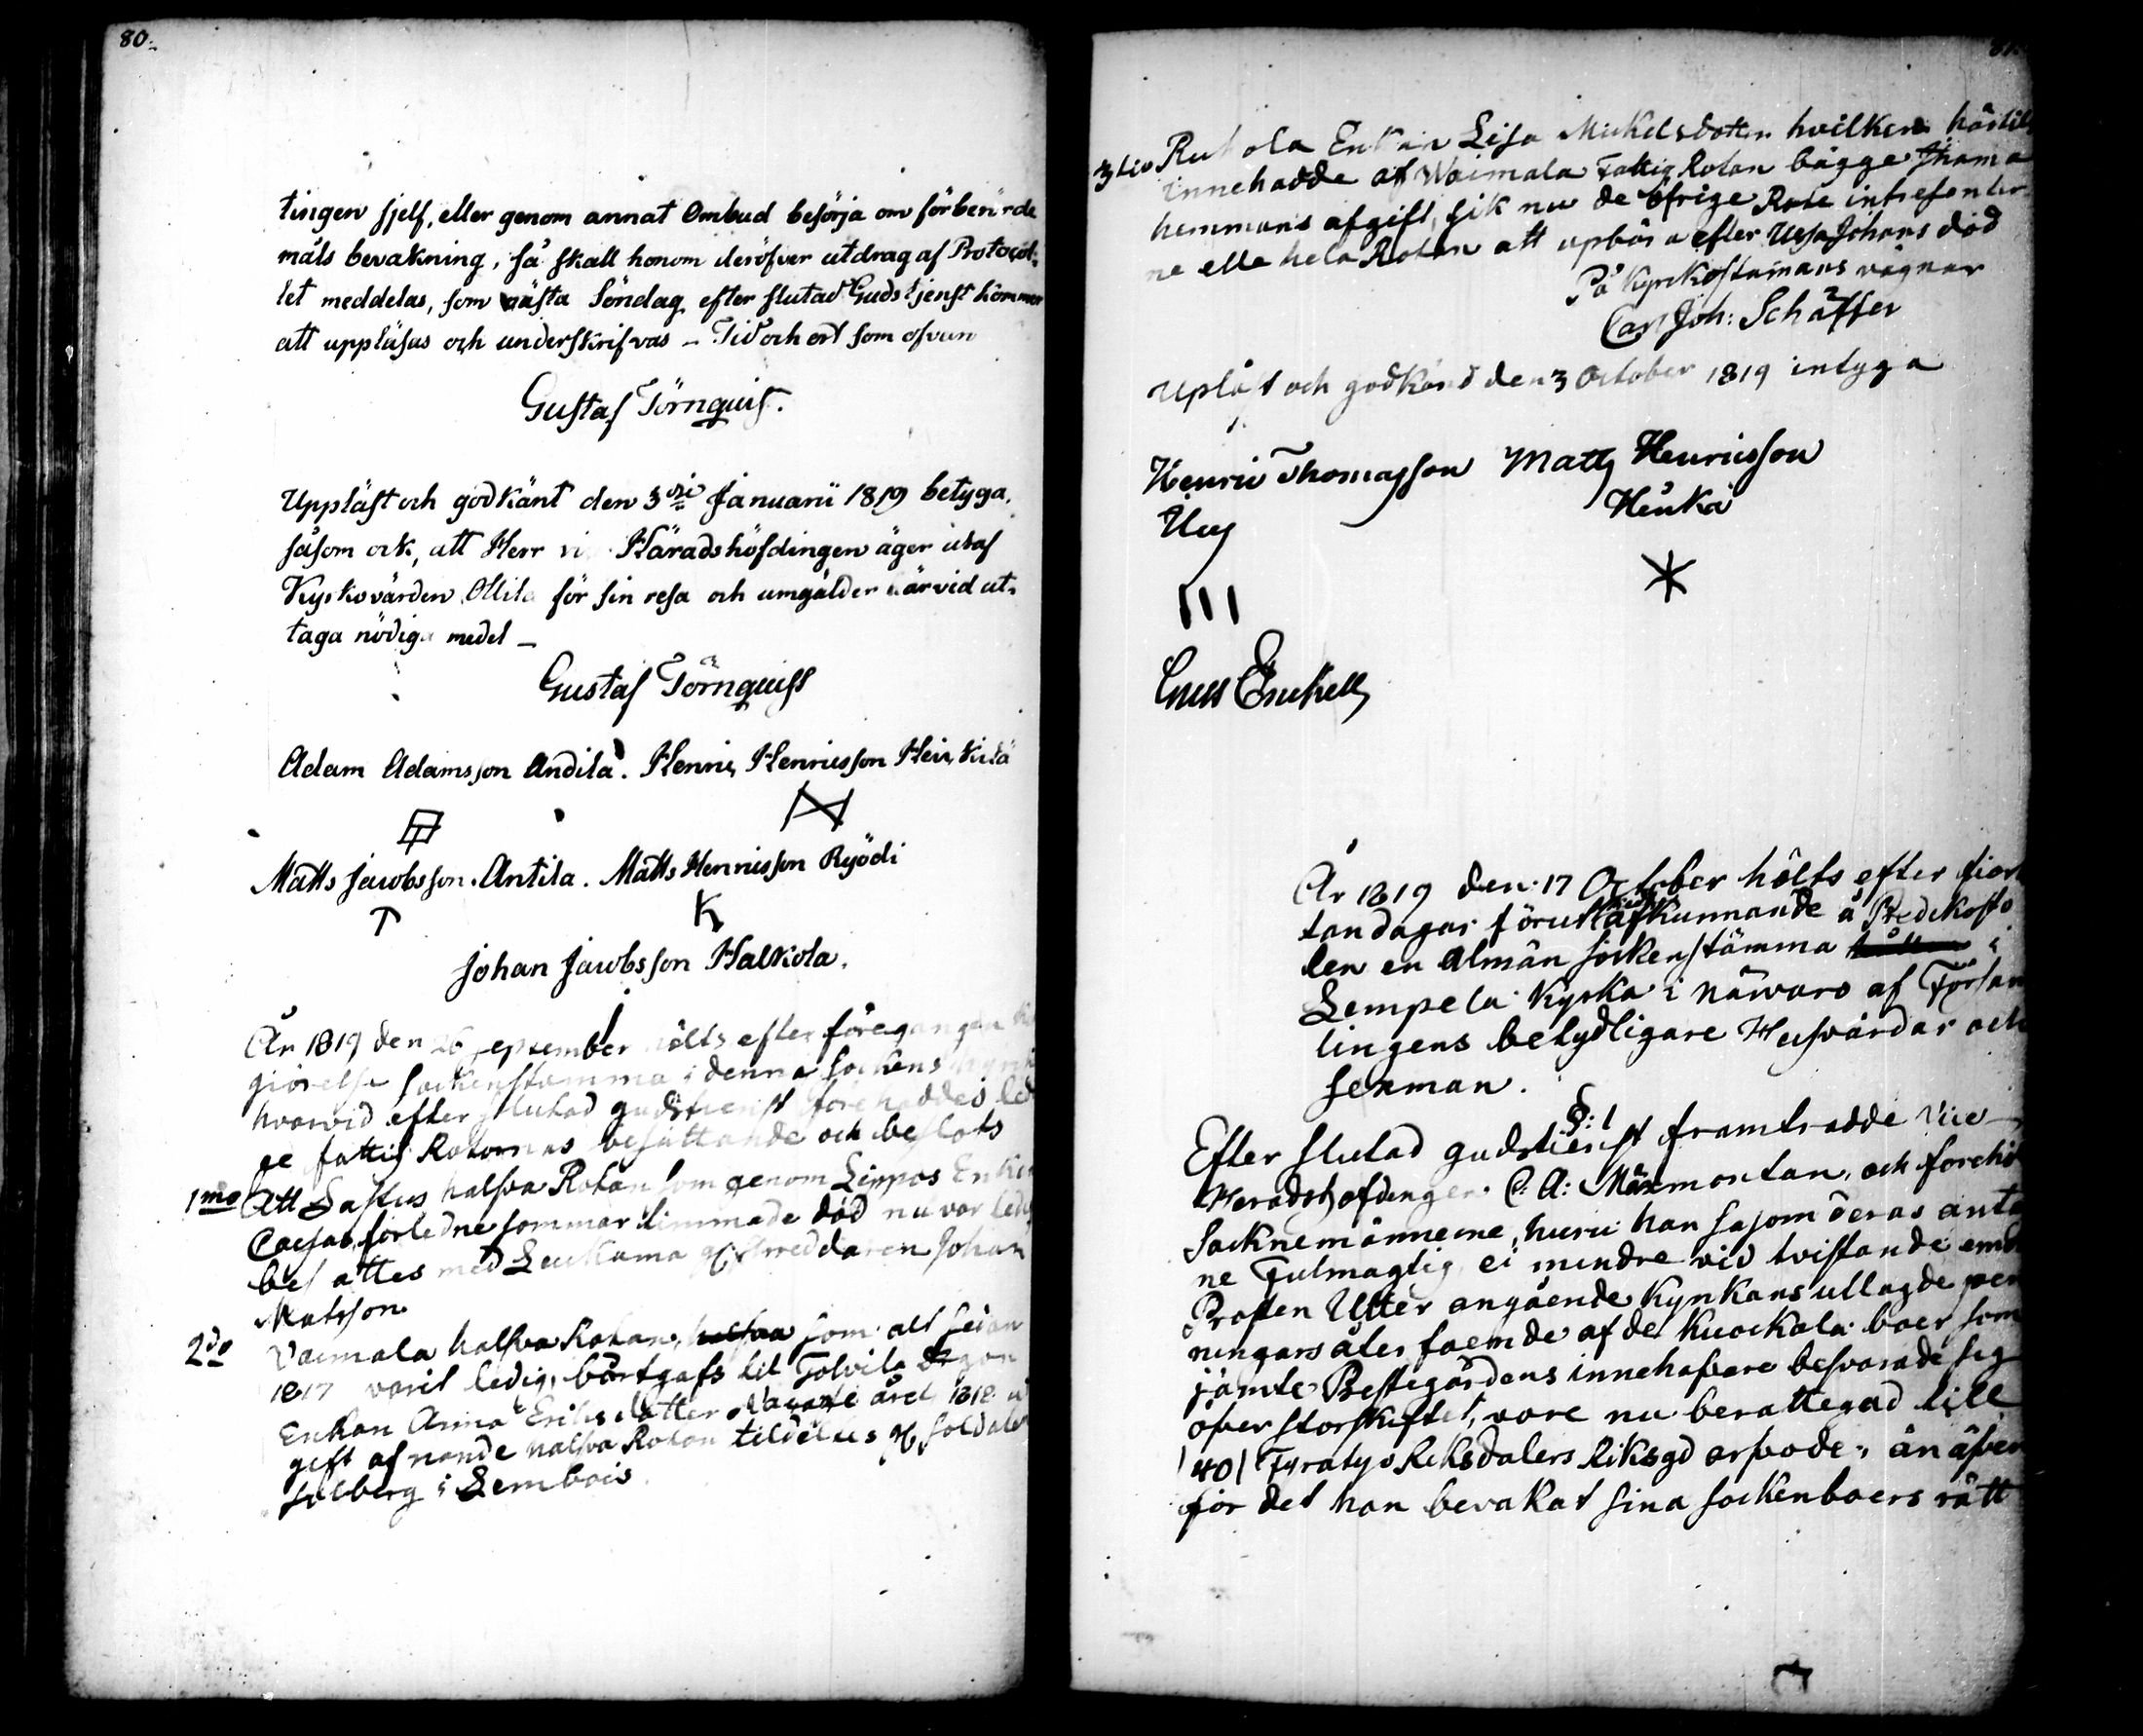 80.
tingen sjelf, eller genom annat Ombud besörja om förberörde
måls bevakning, så skall honom deröfver utdrag af Protocol-
let meddelas, som nästa Söndag efter slutad Gudstjenst kommer
att uppläsas och underskrifvas – Tid och ort som ofvan
Gustaf Törnquist.
Uppläst och godkänt den 3die Januarii 1819 betyga,
såsom ock, att Herr Häradshöfdingen äger utaf
Kyrkovärden Ollila för sin resa och umgälder härvid ut-
taga nödiga medel –
Gustaf Törnquist
Adam Adamsson Andila. Henric Henricsson Heickilä
Matts Jacobsson Antila. Matts Henricsson Ryödi
Johan Jacobsson Halkola.
År 1819 den 26 September hölts efter föregången
giörelse sockenstämma i denna Sockens
hvarvid efter slutad gudstienst förehaddes led
ge fattig Rotornas besättande och beslöts
1mo Att Sastus halfva Rotan som genom Lippos Enkan
Caisas förledne sommar timmade död nu var ledig
besattes med Leukama Johan
Matsson
2do Vaimala halfva Rotan, halfva som alt sedan
1817 varit ledig, bortgafs til Tolvila
Enkan Anna Ericsdotter Vacante året 1818
gift af nande halfva Rotan tildeltes soldaten
Solberg i Lembois
3tio Rukola Enkan Lisa Mickelsdotter hvilken härtils
innehadde af Waimala Fattig Rotan bägge
hemmans afgift, fik nu de öfrige Rote intresenter
ne elle hela Rotan att upbära efter Johans död
På Kyrkostämans vägnar
Carl Joh: Schäffer
Upläst och godkänd den 3 October 1819 intyga
Henric Thomasson Matts Henricsson
Uus Heickä
Enckell
År 1819 den 17 October hölts efter fior
tan dagar förut afkunnande å Predikosto
len en Almän sockenstämma i
Lempela Kyrka i närvaro af Försam
lingens betydligare Husvärdar och
sexman.
§:1
Efter slutad gudstienst framtradde Vice
Heradshöfdingen C. A: Mårmontan, och förehöl
Socknemännerne, huru han såsom deras anta
ne Fulmagtig ei mindre vid tvistande emot
Prosten Utter angående Kyrkans utlagde pen
ningars återfåemde af de Kuockala boer som
jämte Prestegårdens innehafvare besvarade sig
öfver storskiftet, vore nu berättegad till
/40/ Fyratyo Riksdalers Riksgd arfvode, än äfven
för det han bevakat sina sockenboers rätt